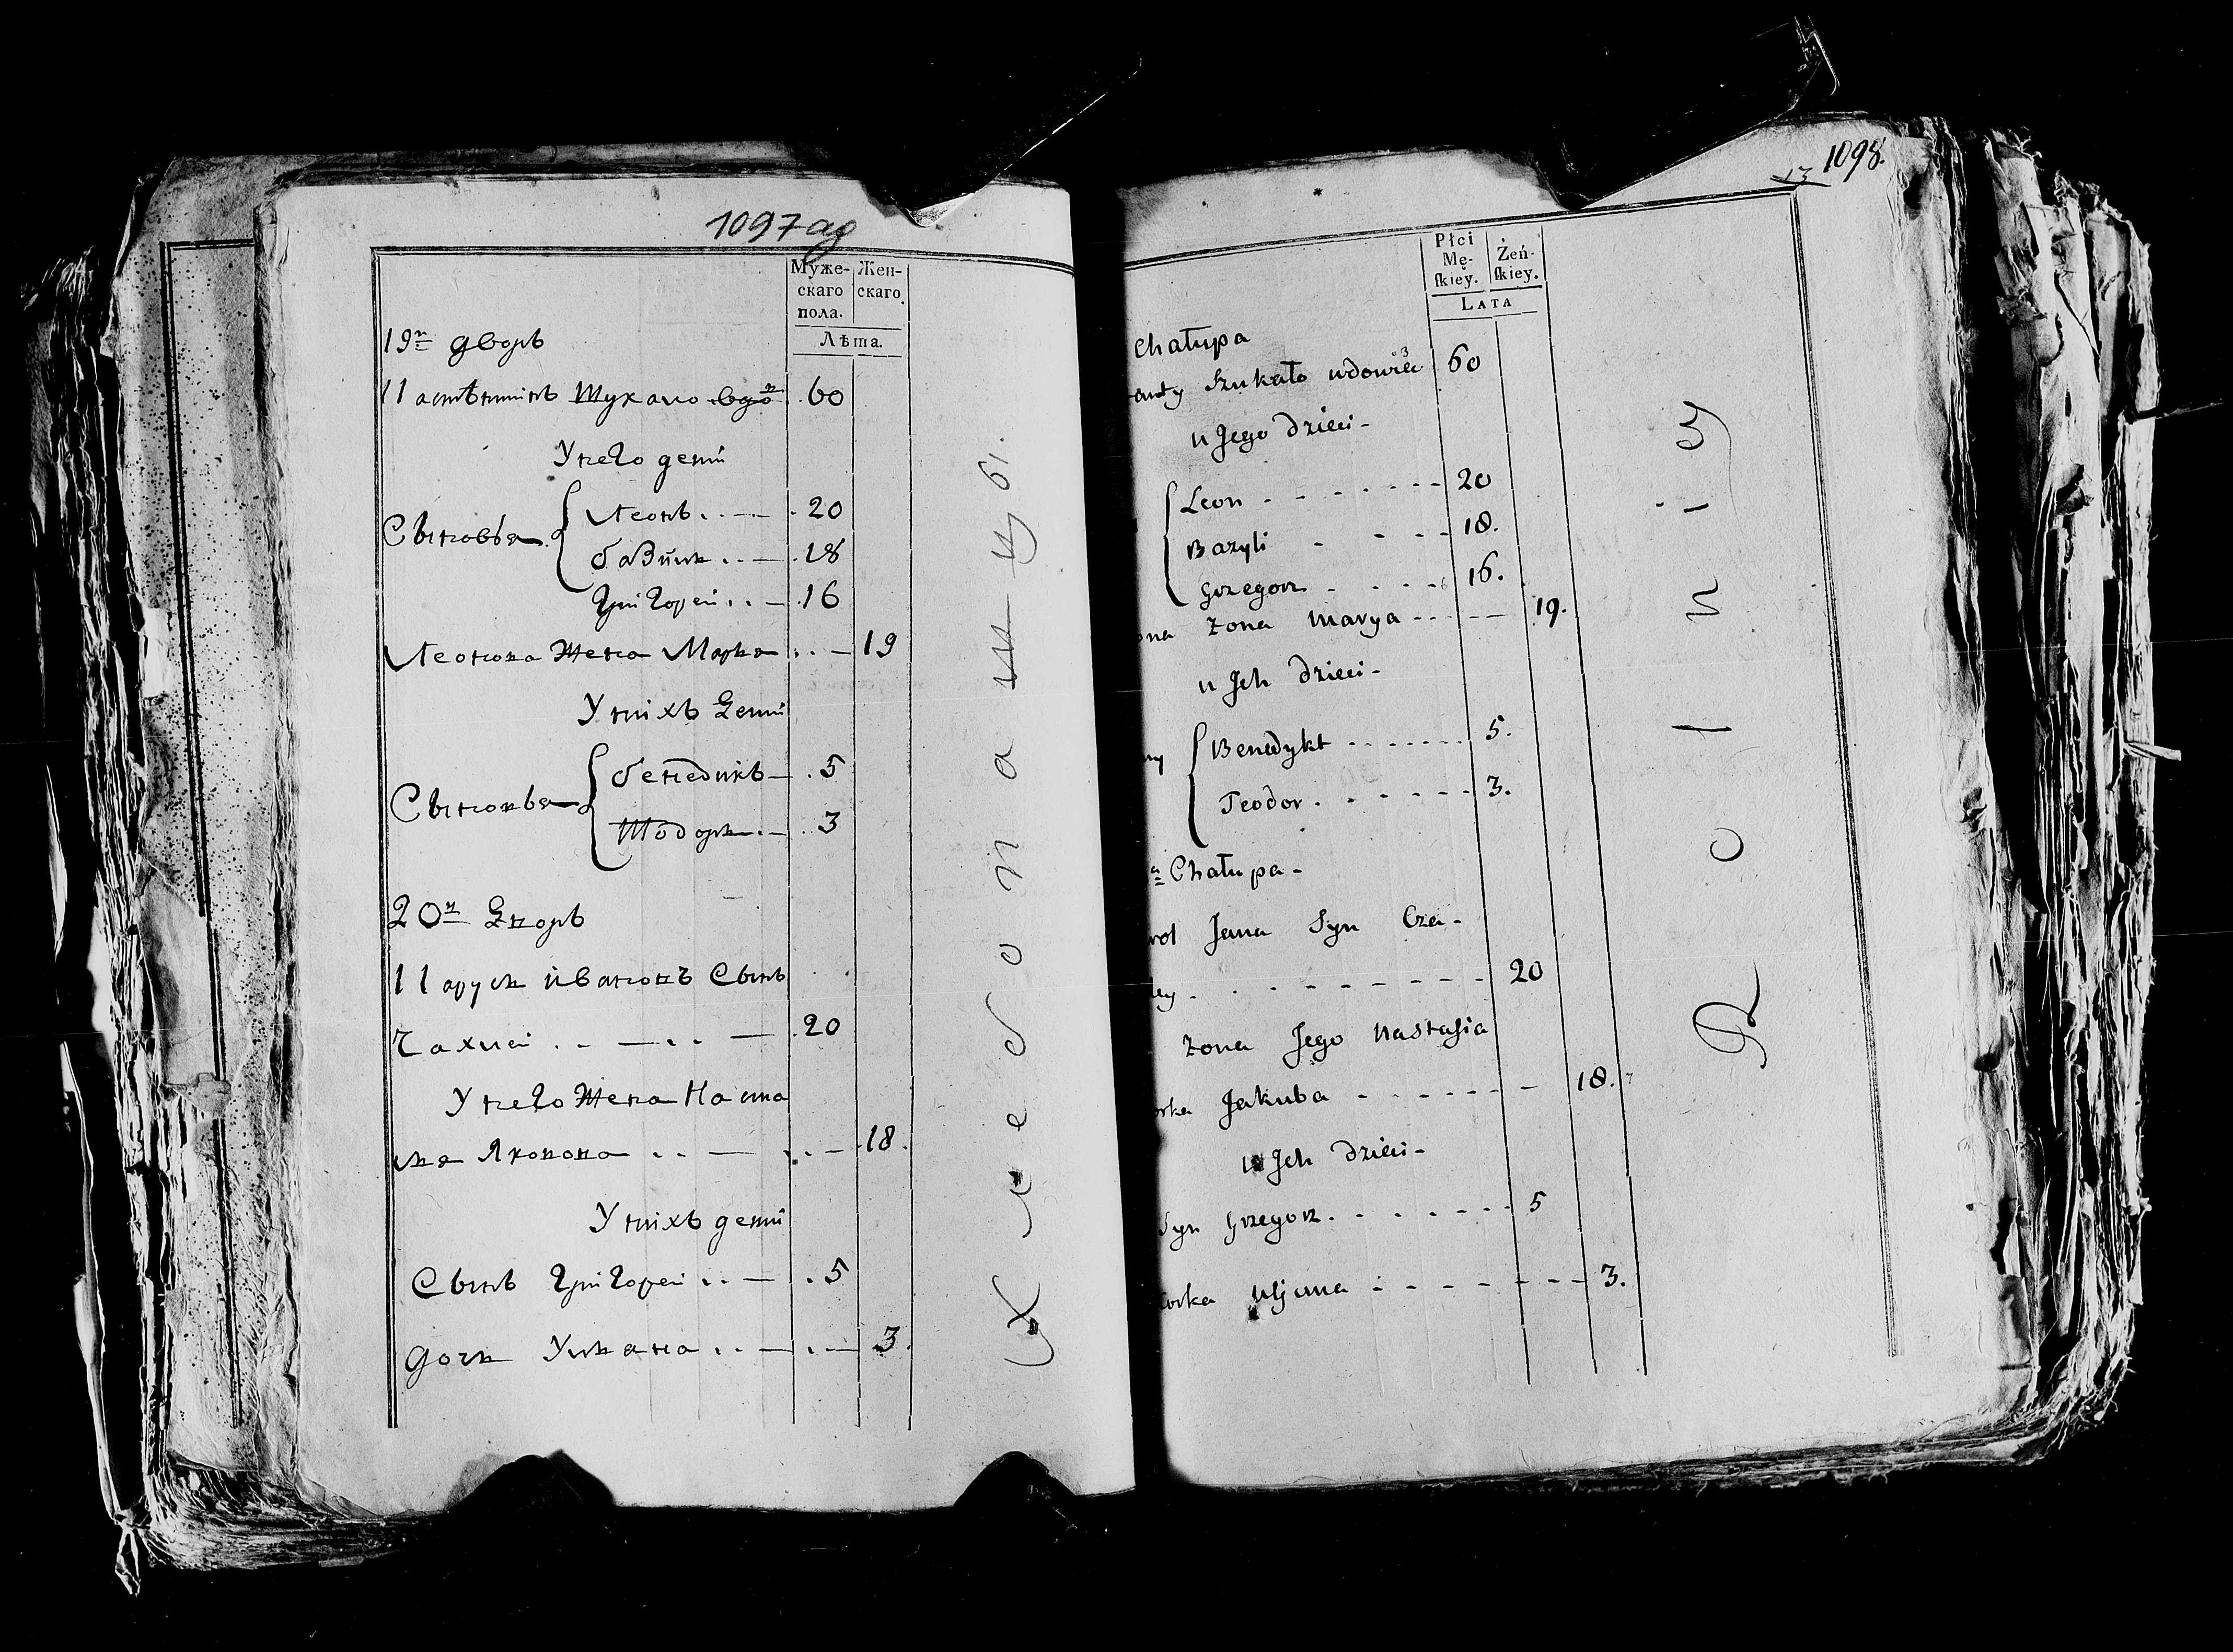 1097 ад
Муже-
скаго
пола.
Жен-
скаго.
Лѣта.
19й дворъ
Шукало вдо 60
У него дети
Сыновья
Леонъ 20
Базиль 18
Григорей 16
Леонова жена Марья 19
У нихъ дети
Сыновья
Бенедикъ 5
Тодоръ 3
20й дворъ
Ивановъ Сынъ
20
У него жена Наста
ся Яковова 18
У нихъ дети
Сынъ Григорей 5
дочь Ульяна 3
Хлебопашцы
1098.
13
Płci
Mę-
skiey.
Żeń-
skiey.
LATA
Chałupa
Szukało wdowiec 60
u Jego dzieci -
Leon 20
Bazyli 18.
Grzegorz 16.
Żona Marya 19.
u Jch dzieci -
Benedykt 5.
Teodor 3.
Chałupa -
Jana Syn Cza-
20
Żona Jego Nastasia
Jakuba 18.
u Jch dzieci -
Syn Grzegorz 5
Corka Uljana 3.
Rolnicy